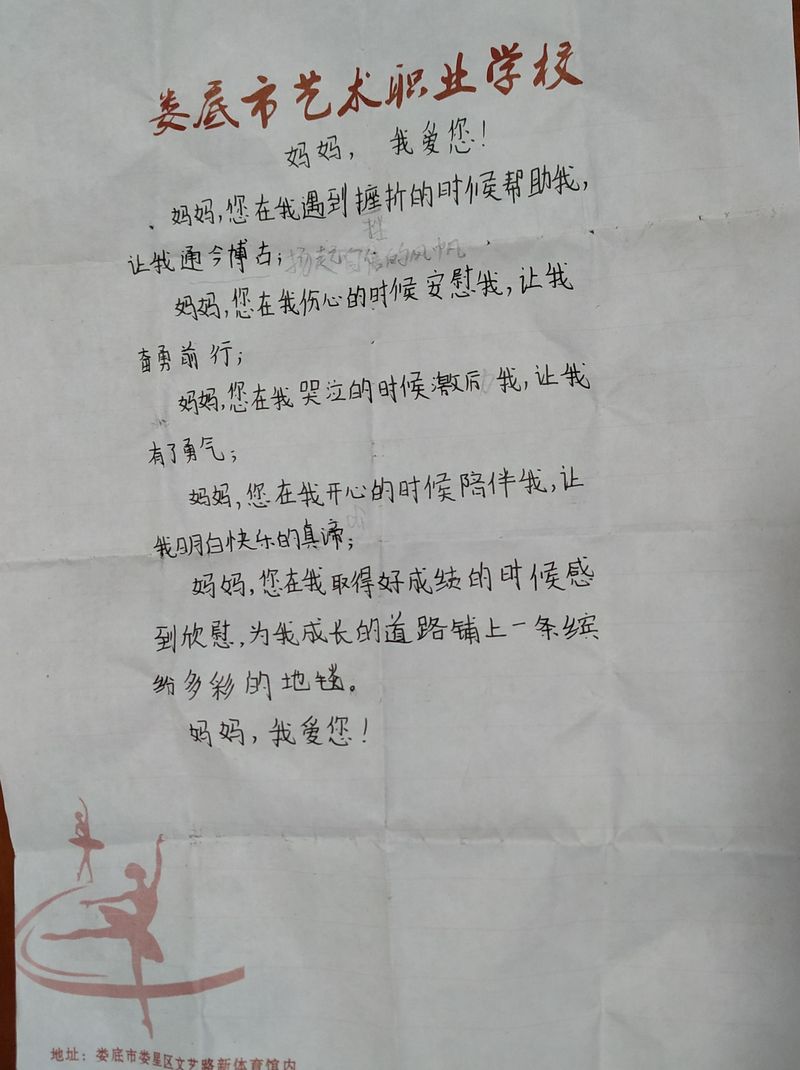 娄底市艺术职业学校
妈妈，我爱您！
妈妈，您在我遇到挫折的时候帮助我，
挫
让我通今博古；扬起自信的风帆
妈妈，您在我伤心的时候安慰我，让我
奋勇前行；
妈妈，您在我哭泣的时候激后我，让我
有了勇气；
妈妈，您在我开心的时候陪伴我，让
我明白快乐的真谛；
妈妈，您在我取得好成绩的时候感
到欣慰，为我成长的道路铺上一条缤
纷多彩的地毯。
妈妈，我爱您！
地址：娄底市娄星区文艺路新体育馆内